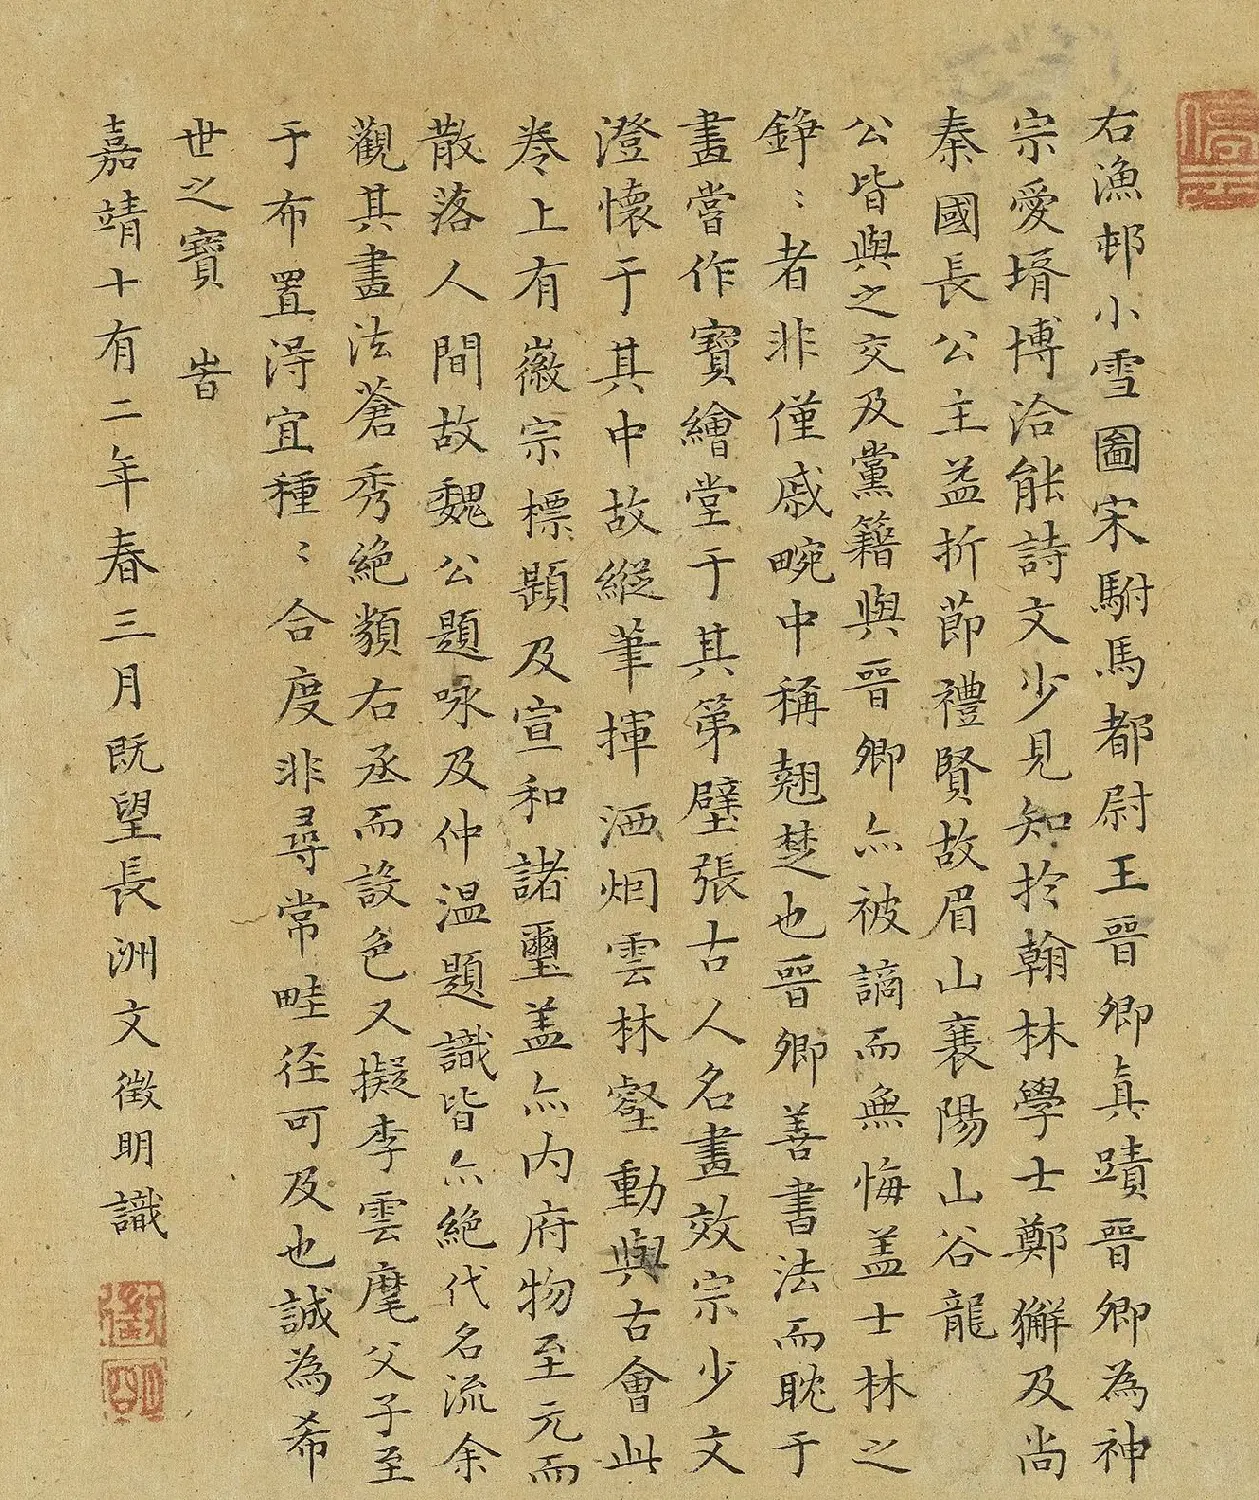 停雲
右漁邨小雪圖宋駙馬都尉王晉卿真蹟晉卿為神
宗愛壻博洽能詩文少見知於翰林學士鄭獬及尚
秦國長公主益折節禮賢故眉山襄陽山谷龍
公皆與之交及黨籍與晉卿亦被謫而無悔盖士林之
錚〻者非僅戚畹中稱翹楚也晉卿善書法而耽于
畫嘗作寶繪堂于其第壁張古人名畫效宗少文
澄懷于其中故縱筆揮洒烟雲林壑動與古會此
卷上有徽宗標題及宣和諸璽盖亦內府物至元而
散落人間故魏公題咏及仲温題識皆亦絕代名流余
觀其畫法蒼秀絕類右丞而設色又擬李雲麾父子至
于布置得宜種〻合度非尋常畦径可及也誠為希
世之寶 旹
嘉靖十有二年春三月既望長洲文徵明識
徵
明